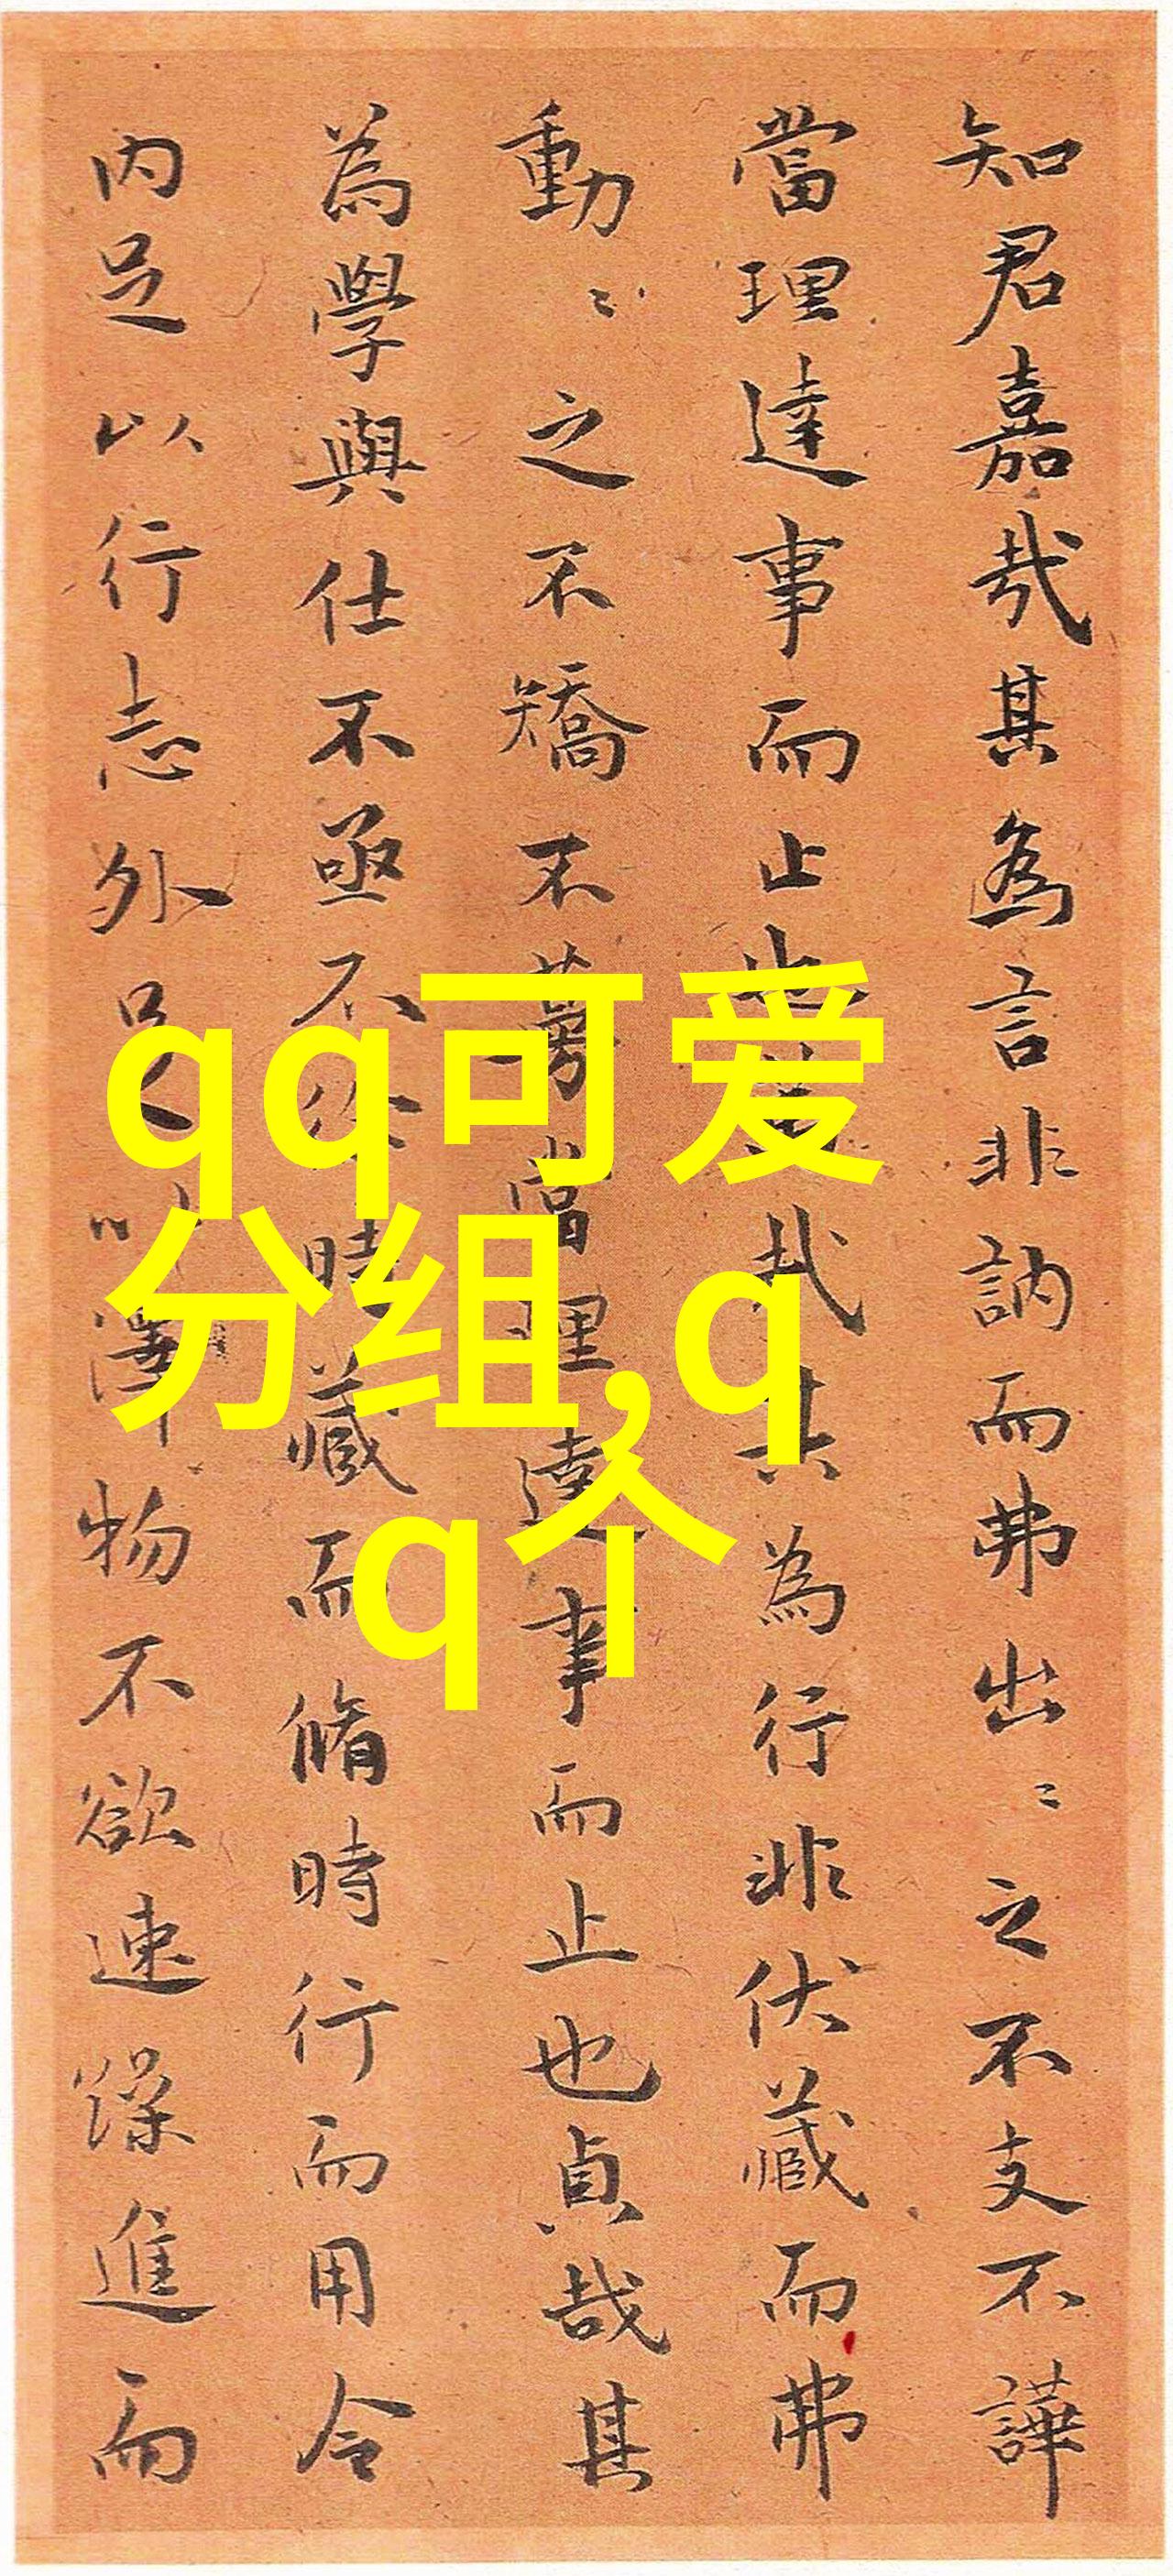 知君嘉哉其為言非訥而弗出〻之不支不譁
當理達事而止也哉其為行非伏藏而弗
動〻之不矯不當理達事而止也貞哉其
為學與仕不亟不時藏而脩時行而用令
内足以行志外足以澤物不欲速躁進而
qq可爱
分组,q
q个